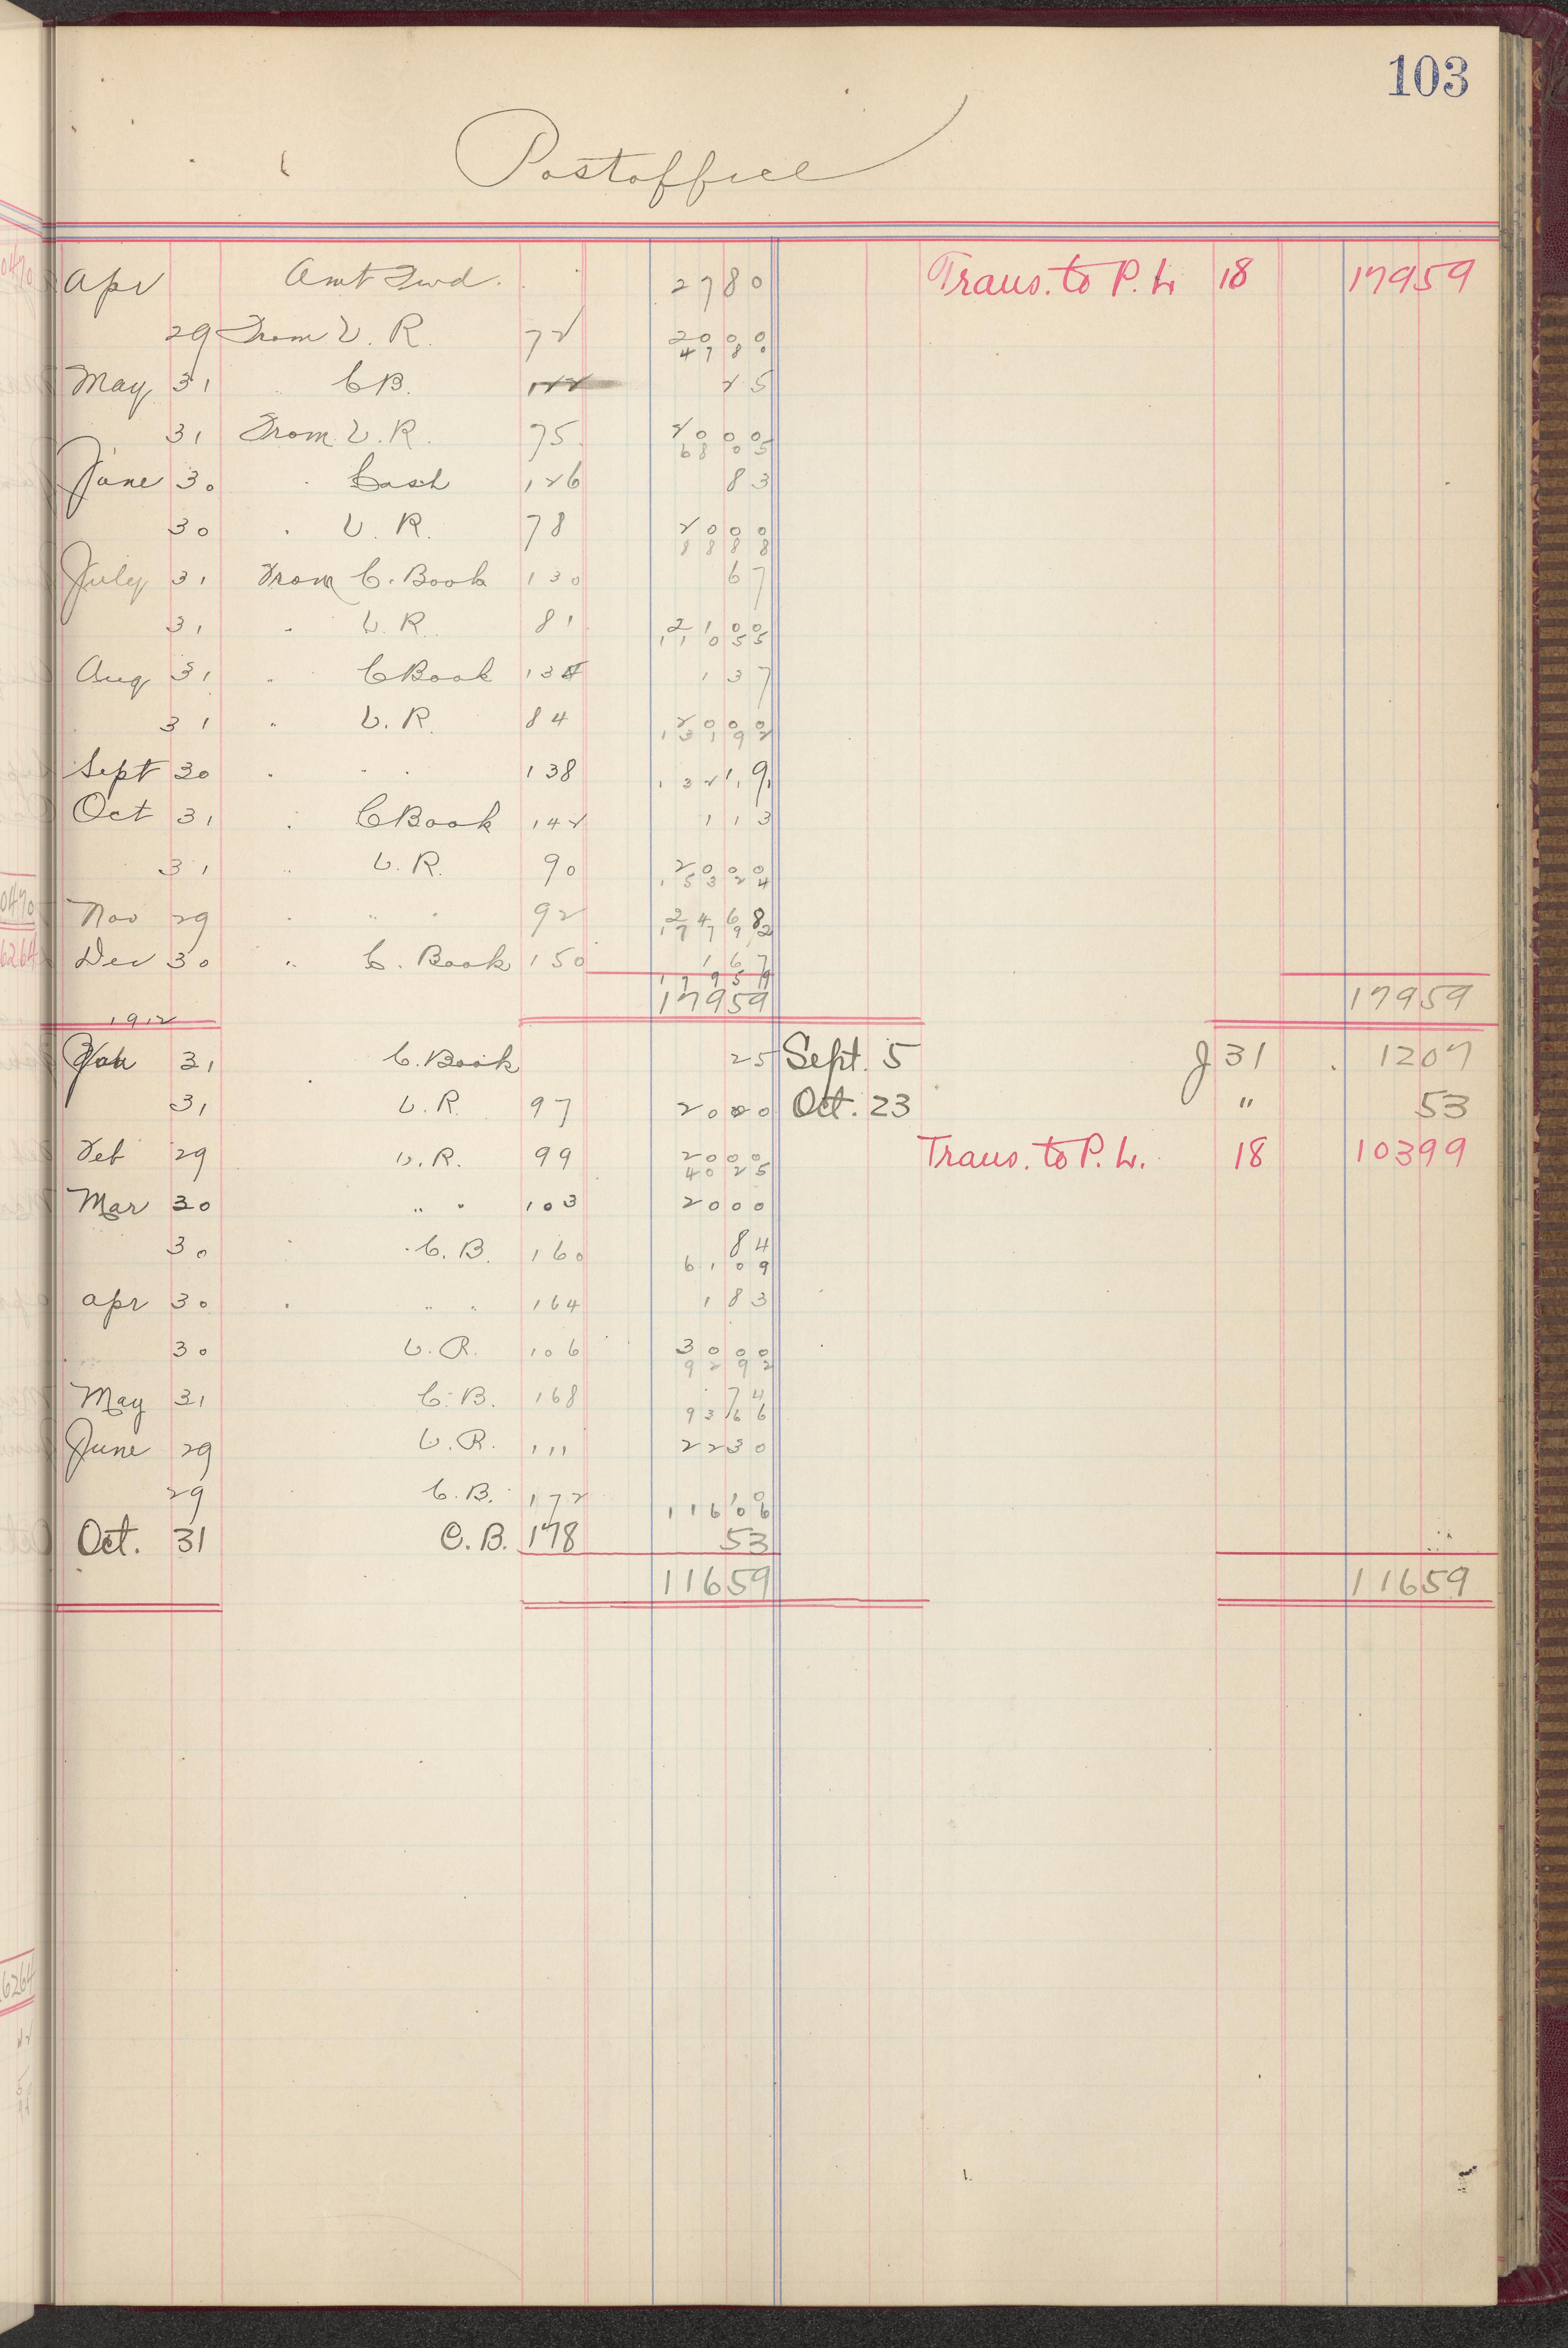 103
Postoffice
Apr Amt Fwd. 2780 Trans. to P. L. 18 17959
29 From V. R. 72 2000
4780
May 31 C B. 122 25
31 From V. R. 75 2000
6805
June 30 " Cash 126 83
30 " V. R. 78 2000
8888
July 31 From C. Book 130 67
31 " V. R. 81 2100
11055
Aug 31 " C Book 134 137
31 " V. R. 84 2000
13192
Sept 30 " " " 138 19
13211
Oct 31 " C Book 142 113
31 " V. R. 90 2000
15324
Nov 29 " " " 92 2468
17792
Dec 30 " C. Book 150 167
17959
17959 17959
1912
Jan 31 C. Book 25 Sept. 5 J 31 1207
31 V. R. 97 2000 Oct. 23 " 53
Feb 29 V. R. 99 2000 Trans. to P. L. 18 10399
4025
Mar 30 " " 103 2000
30 " C. B. 160 84
6109
Apr 30 " " " 164 183
30 V. R. 106 3000
9292
May 31 C. B. 168 74
9366
June 29 V. R. 111 2230
29 C. B. 172 10
11606
Oct. 31 C. B. 178 53
11659 11659